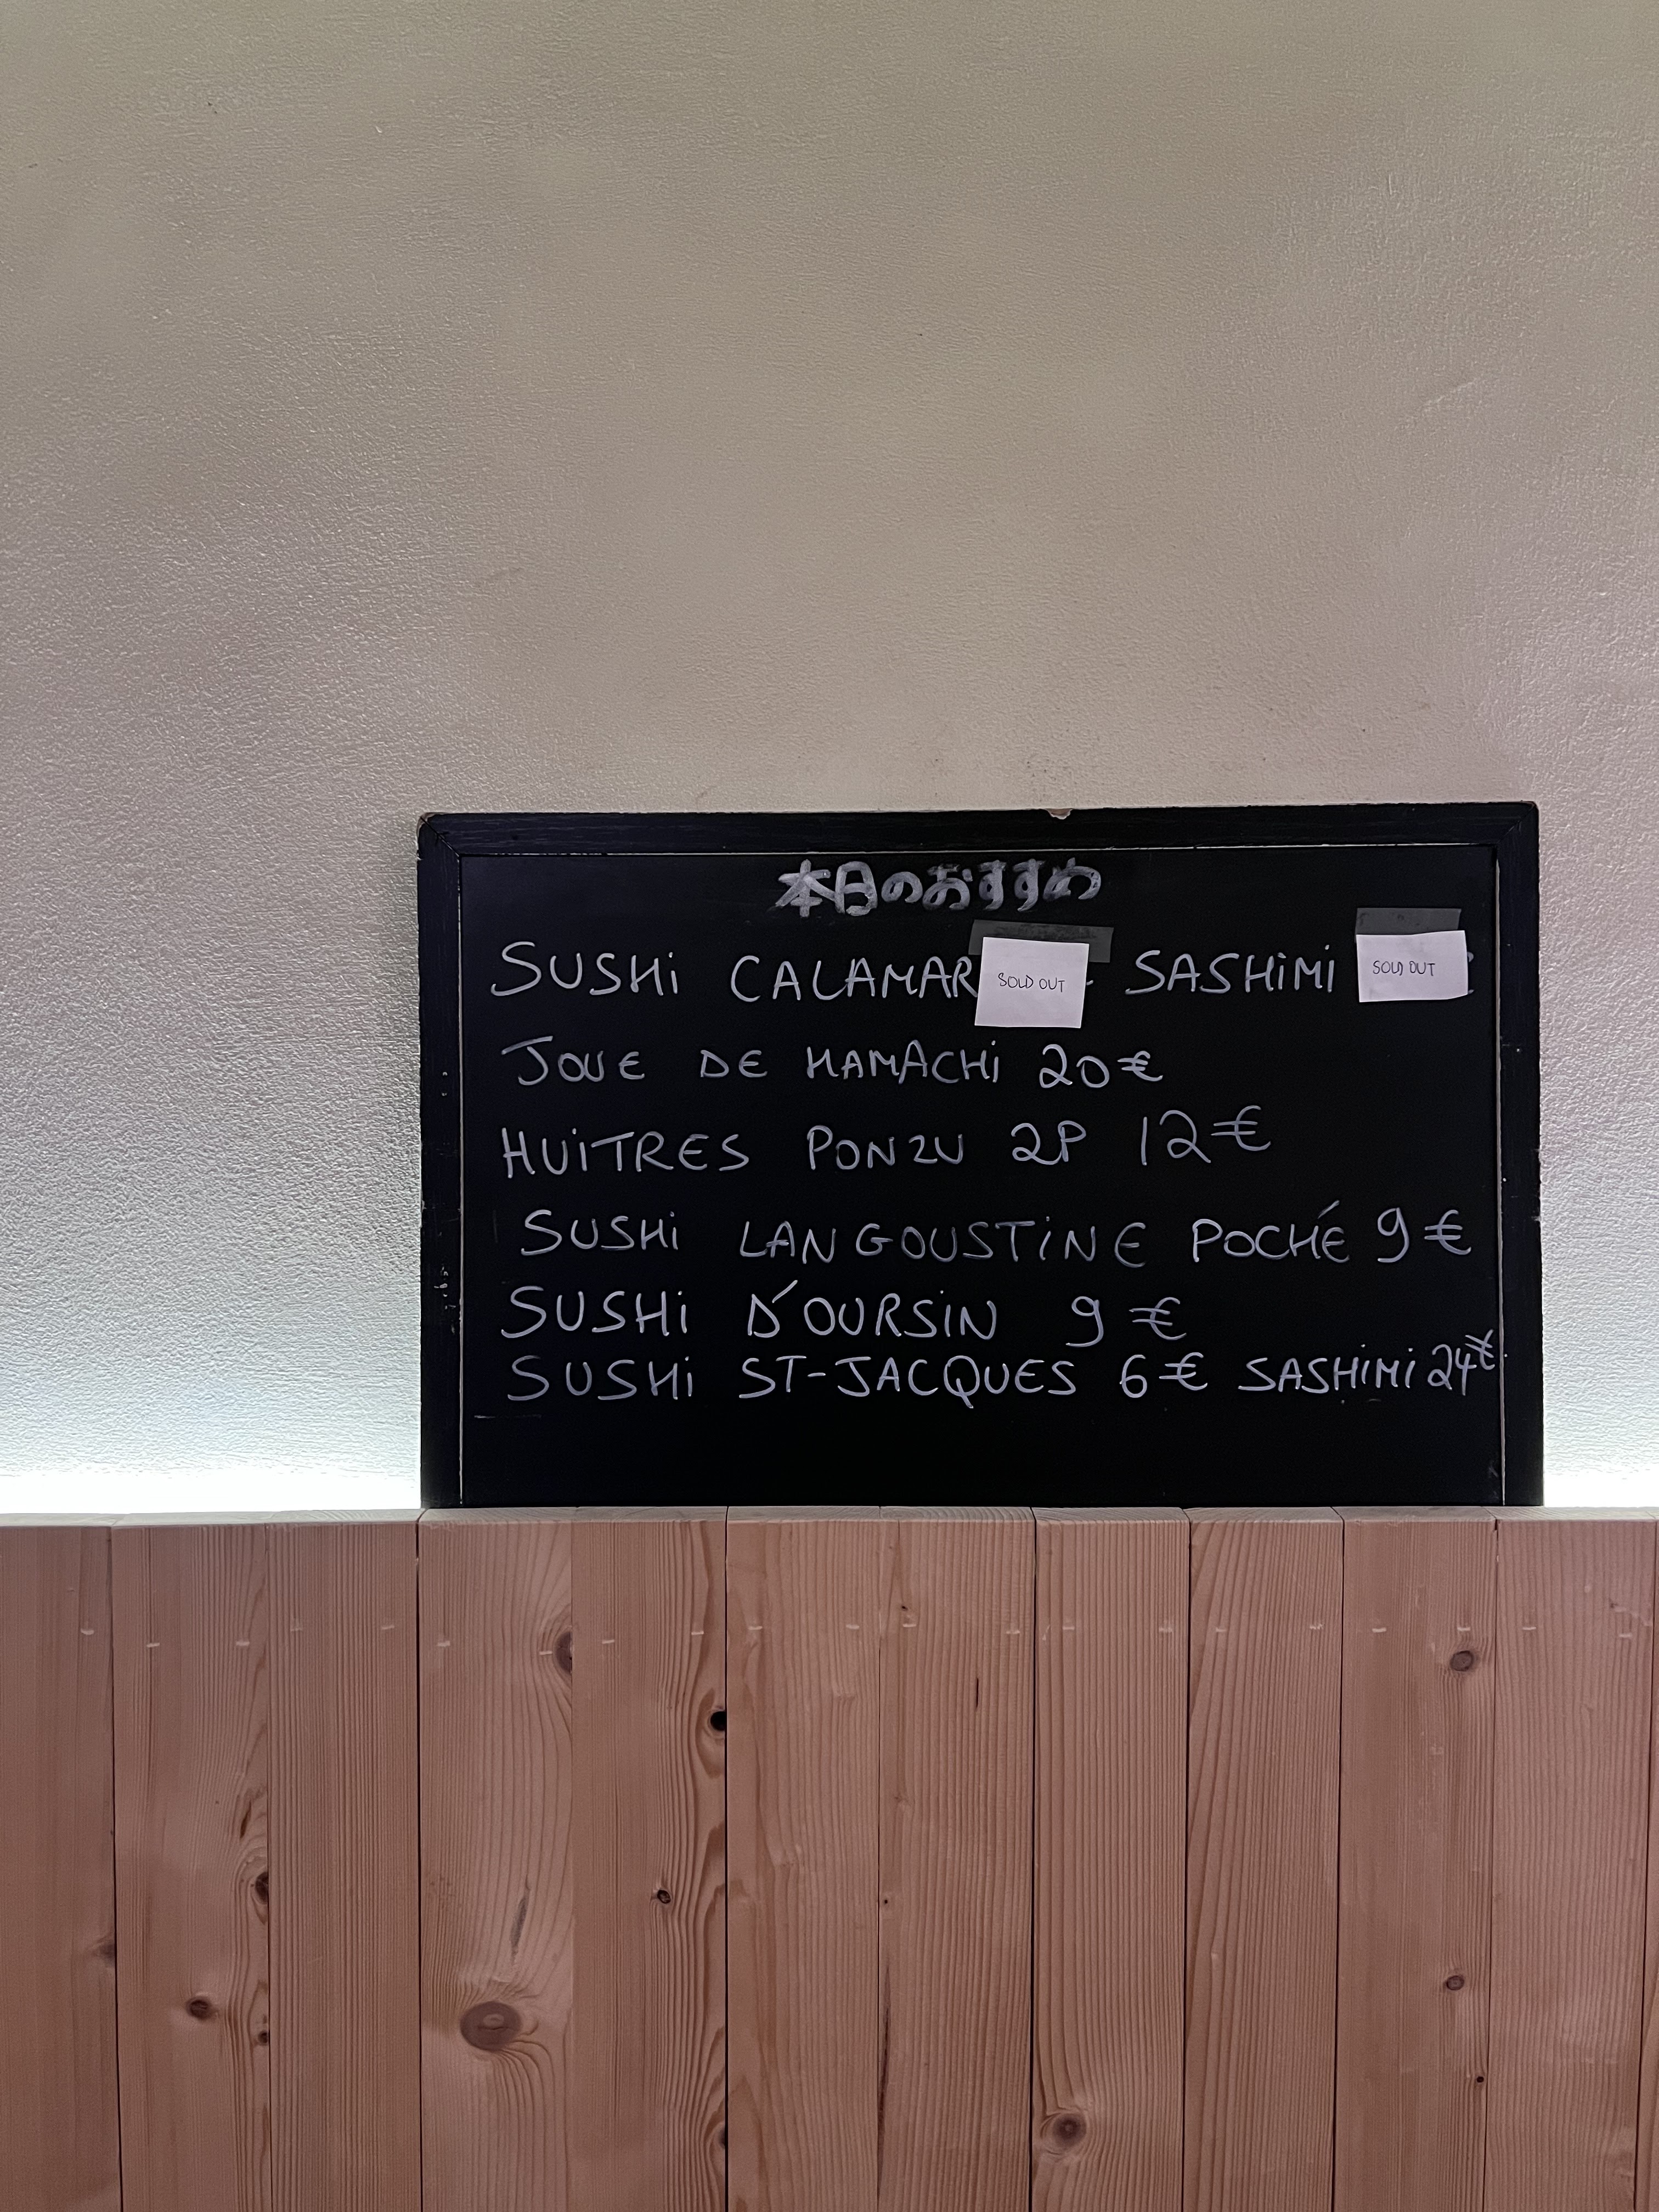 本日のおすすめ
SUSHi CALAMAR SOLD OUT SASHiMi SOLD OUT
JOUE DE HAMACHi 20€
HUiTRES PONZU 2P 12€
SUSHi LANGOUSTiNE POCHÉ 9€
SUSHi D'OURSiN 9€
SUSHi ST-JACQUES 6€ SASHiMi 24€